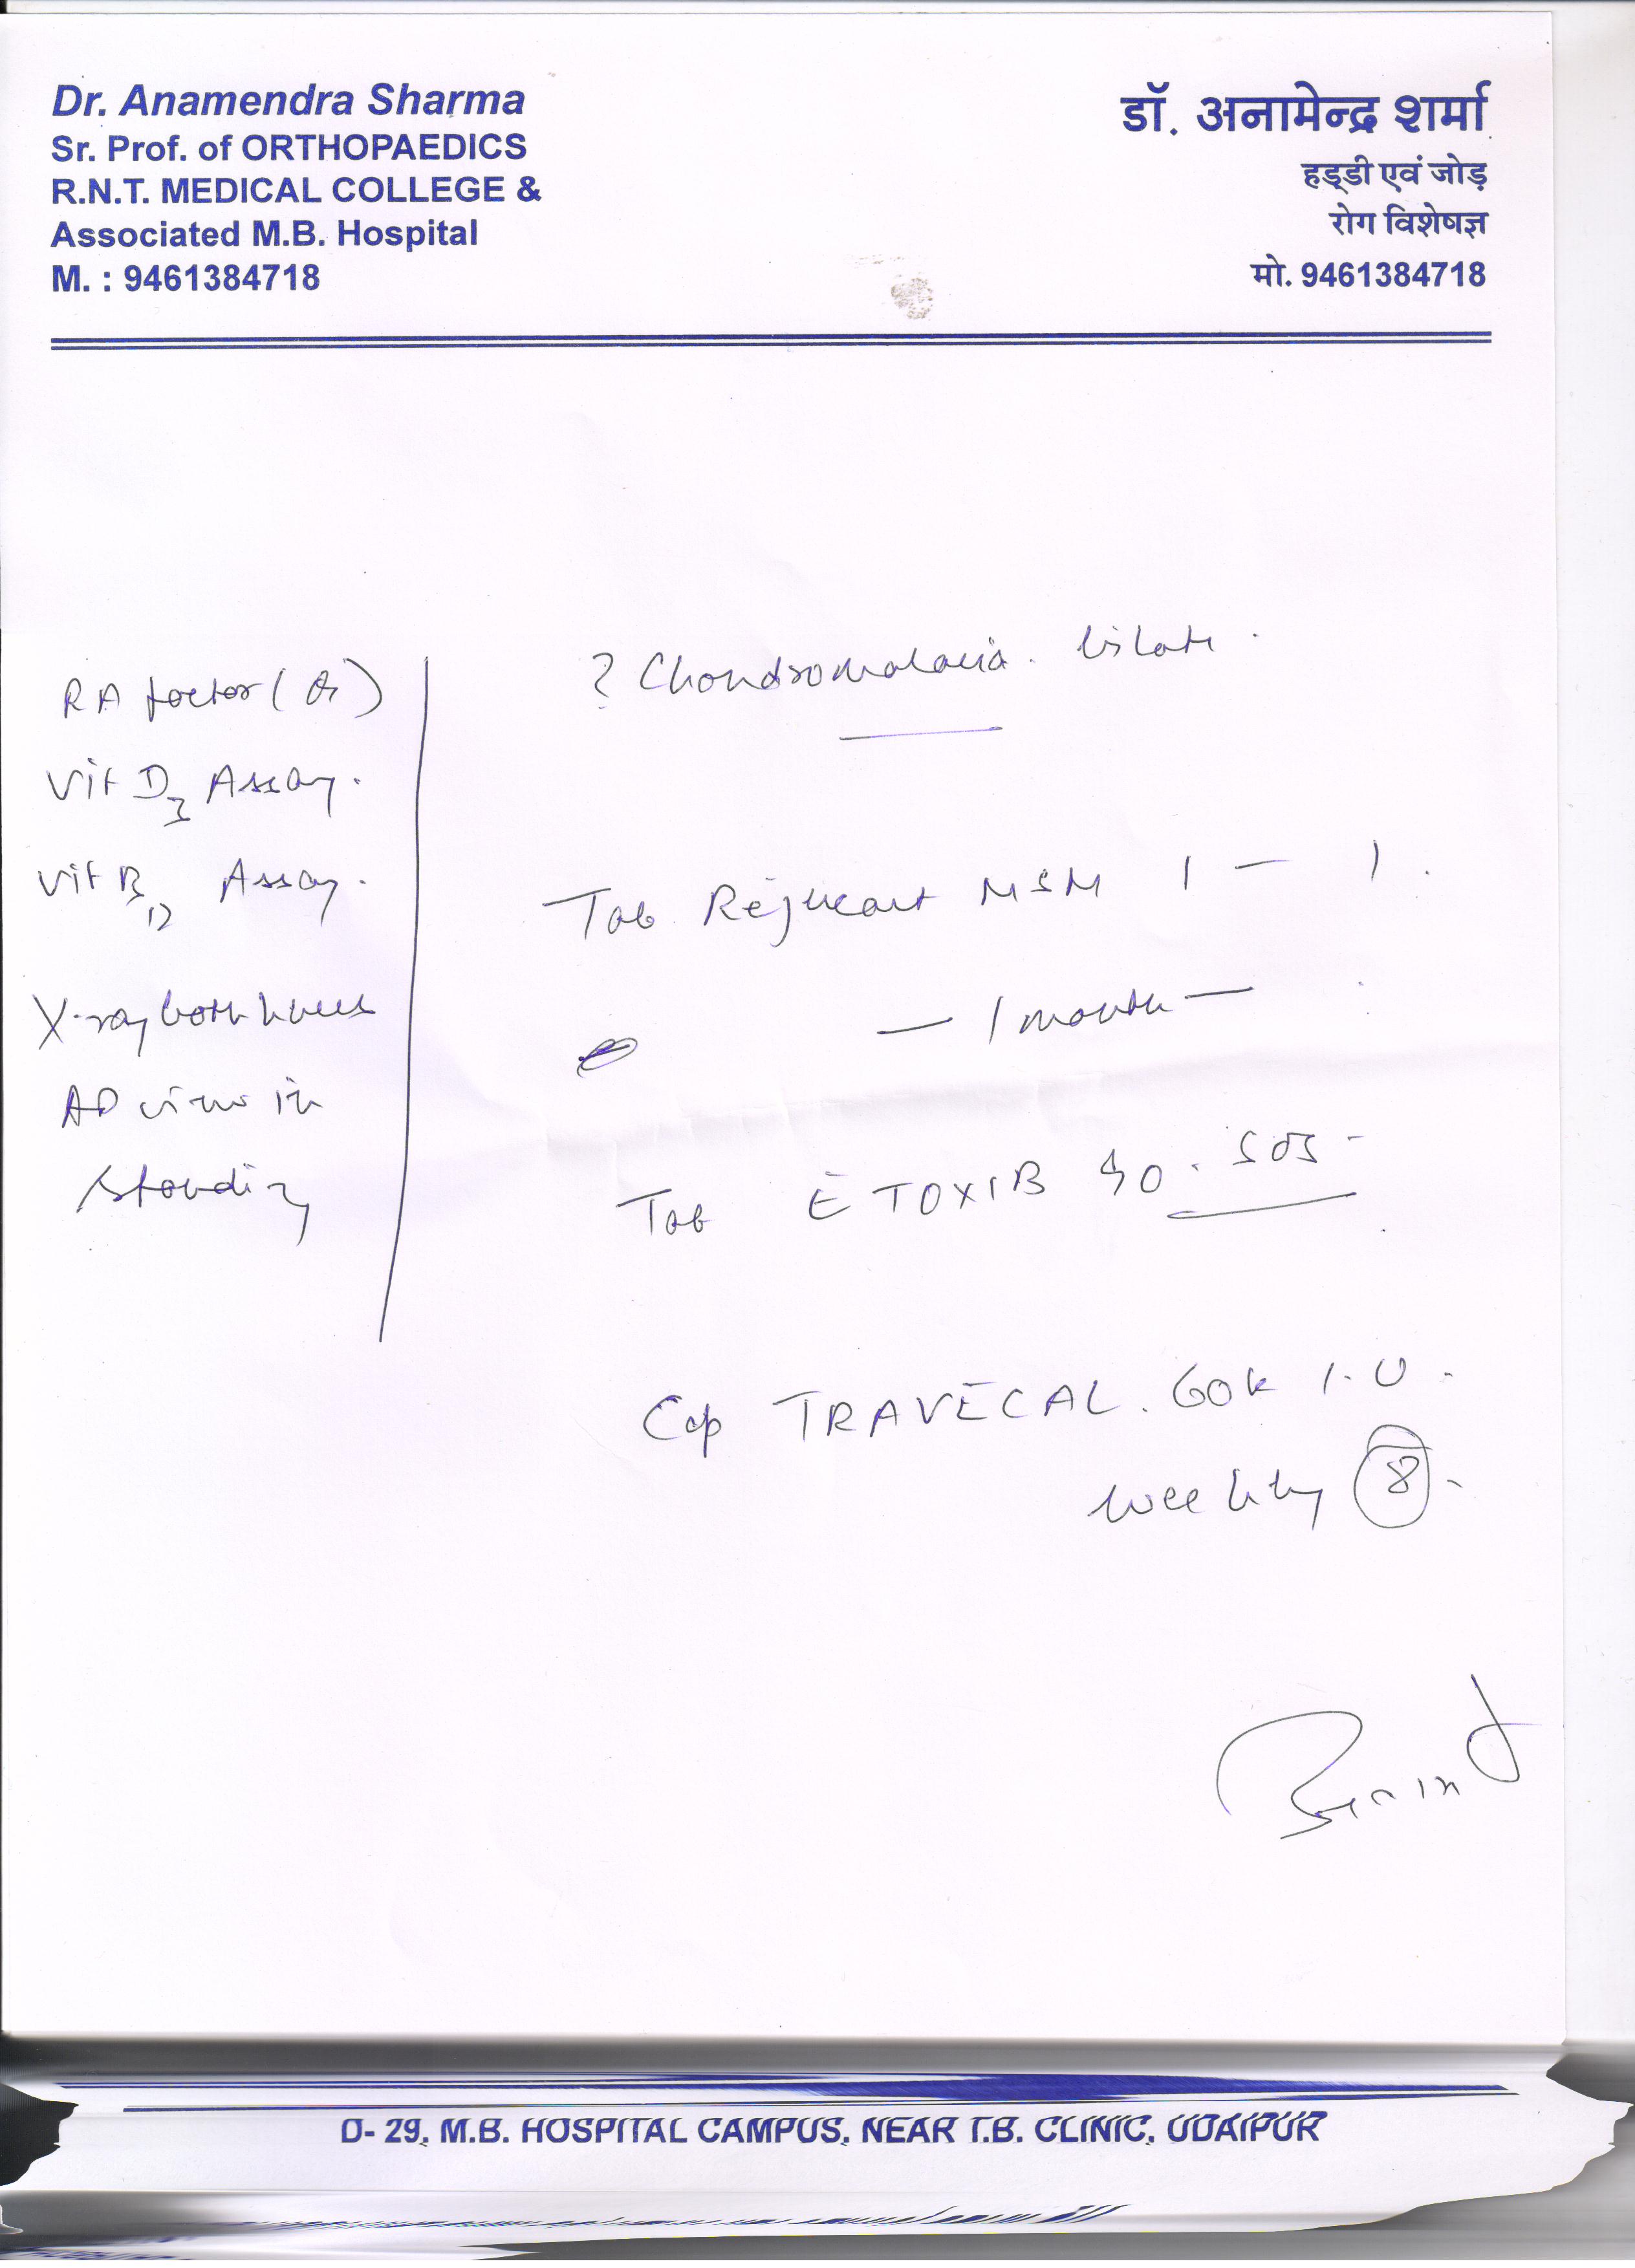 Dr. Anamendra Sharma
Sr. Prof. of ORTHOPAEDICS
R.N.T. MEDICAL COLLEGE &
Associated M.B. Hospital
M. : 9461384718
डॉ. अनामेन्द्र शर्मा
हड्डी एवं जोड़
रोग विशेषज्ञ
मो. 9461384718
RA factor
Vit D3 Assay.
Vit B12 Assay.
X-ray both knees
AP view in
standing
? Chondromalacia.
Tab MSM 1 — 1
— 1 month —
Tab ETOXIB 90. SOS -
Cap TRAVECAL. 60k I.U.
weekly 8
D- 29, M.B. HOSPITAL CAMPUS, NEAR T.B. CLINIC, UDAIPUR